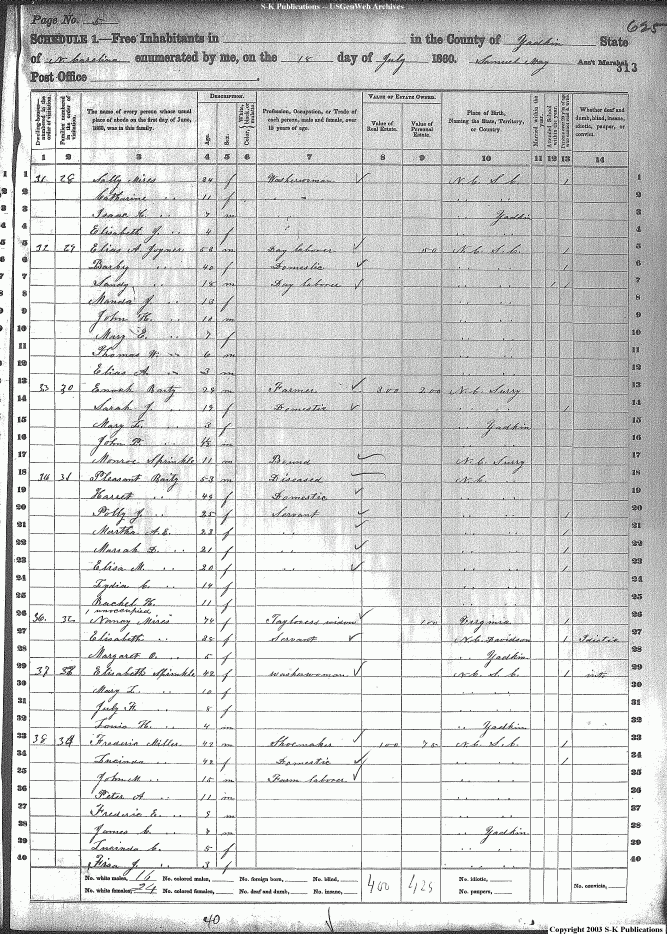 S-K Publications -- USGenWeb Archives
Page No. 5
625
SCHEDULE 1.—Free Inhabitants in in the County of Yadkin State
of N Carolina enumerated by me, on the 18 day of July 1860. Samuel May Ass't Marshal
313
Post Office
Dwelling-houses— numbered in the order of visitation.
Families numbered in the order of visitation.
The name of every person whose usual place of abode on the first day of June, 1860, was in this family.
DESCRIPTION.
Age.
Sex.
Color, White, black, or mulatto.
Profession, Occupation, or Trade of each person, male and female, over 15 years of age.
VALUE OF ESTATE OWNED.
Value of Real Estate.
Value of Personal Estate.
Place of Birth, Naming the State, Territory, or Country.
Married within the year.
Attended School within the year.
Whether deaf and dumb, blind, insane, idiotic, pauper, or convict.
1 2 3 4 5 6 7 8 9 10 11 12 13 14
1 31 28 Sally Mires 24 f Washerwoman N. C. S. C. 1
2 Catharine 11 f
3 Isaac H. 7 m Yadkin
4 Elisabeth J. 4 f
5 32 29 Elias A Joyner m Day laborer N. C. S. C. 1
6 Barby 40 f Domestic 1
7 Sandy 18 m Day laborer
8 Manda J. 13 f
9 John H. m
10 Mary E. 7 f
11 Thomas W. 6 m
12 Elias A. 3 m
13 33 30 Enoch Baity 28 m Farmer 300 200 N. C. Surry
14 Sarah J. 19 f Domestic 1
15 Mary 3 f Yadkin
16 John m
17 Monroe Sprinkle 11 m Bound N. C. Surry
18 31 Pleasant Baity 53 m Diseased N. C.
19 Harriet 49 f Domestic
20 Polly J. 25 f Servant 1
21 Martha A. E. 23 f 1
22 Mariah D. 21 f 1
23 Elisa M. 20 f 1
24 Lydia C. 14 f
25 Rachel H. 11 f
unoccupied
26 36. Nancy Mires 74 f widow 100 Virginia 1
27 Elisabeth 38 f Servant N. C. Davidson 1 Idiotic
28 Margaret 5 f Yadkin
29 37 Elisabeth Sprinkle 42 f washerwoman N. C. S. C. 1
30 Mary L. 10 f
31 July 8 f
32 Louis H. 4 m Yadkin
33 38 34 Frederic Miller 42 m Shoemaker 100 75 N. C. S. C. 1
34 Lucinda 42 f Domestic 1
35 John M. 15 m Farm laborer
36 Peter A. 11 m
37 Frederic E. 8 m
38 James C. 7 m Yadkin
39 Lucinda C. 5 f
40 J. 3 f
No. white males, 16 No. colored males, No. foreign born, No. blind, 400 425 No. idiotic,
No. white females, 24 No. colored females, No. deaf and dumb, No. insane, No. paupers, No. convicts,
40
Copyright 2003 S-K Publications